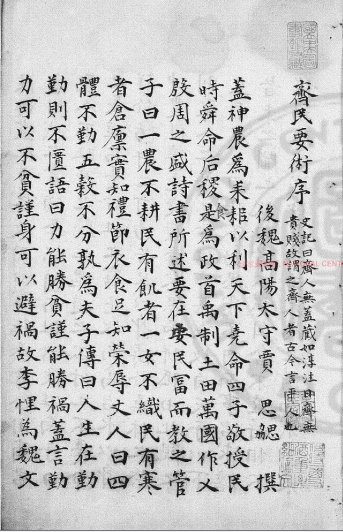 齊民要術序
史記曰齊人無蓋藏如淳注曰齊無
貴賤故謂之齊人者古今言平人也
後魏高陽太守賈思勰撰
蓋神農爲耒耜以利天下堯命四子敬授民
時舜命后稷是爲政首禹制土田萬國作乂
殷周之盛詩書所述要在安民富而教之管
子曰一農不耕民有飢者一女不織民有寒
者倉廩實知禮節衣食足知榮辱丈人曰四
體不勤五穀不分孰爲夫子傳曰人生在勤
勤則不匱語曰力能勝貧謹能勝禍蓋言勤
力可以不貧謹身可以避禍故李悝爲魏文